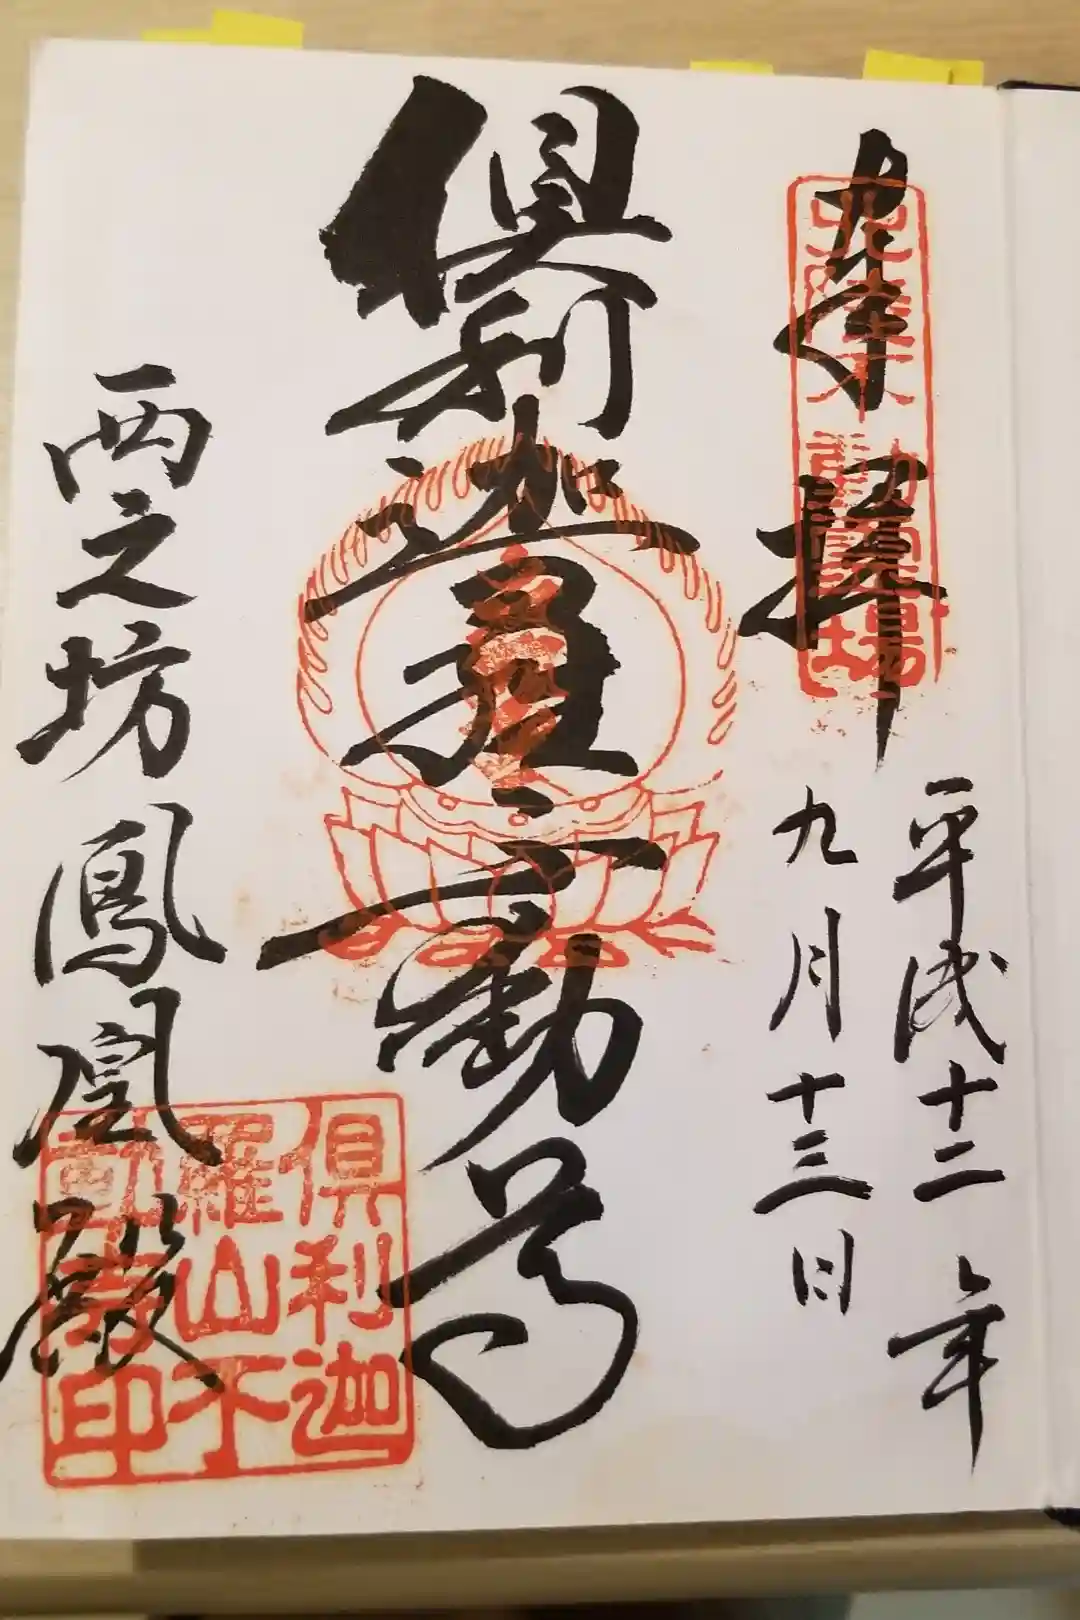 奉拝
平成十二年
九月十三日
倶利迦羅不動尊
西之坊鳳凰殿
倶利迦
羅山不
動寺印